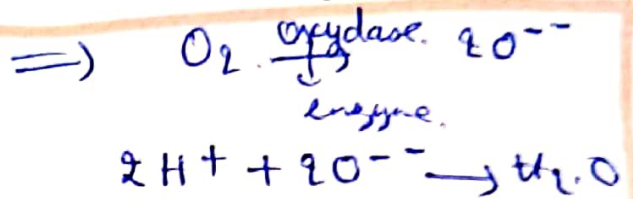 ⇒ O₂ oxydase. → 2O⁻⁻
↓
enzyme.
2H⁺ + 2O⁻⁻ → H₂O